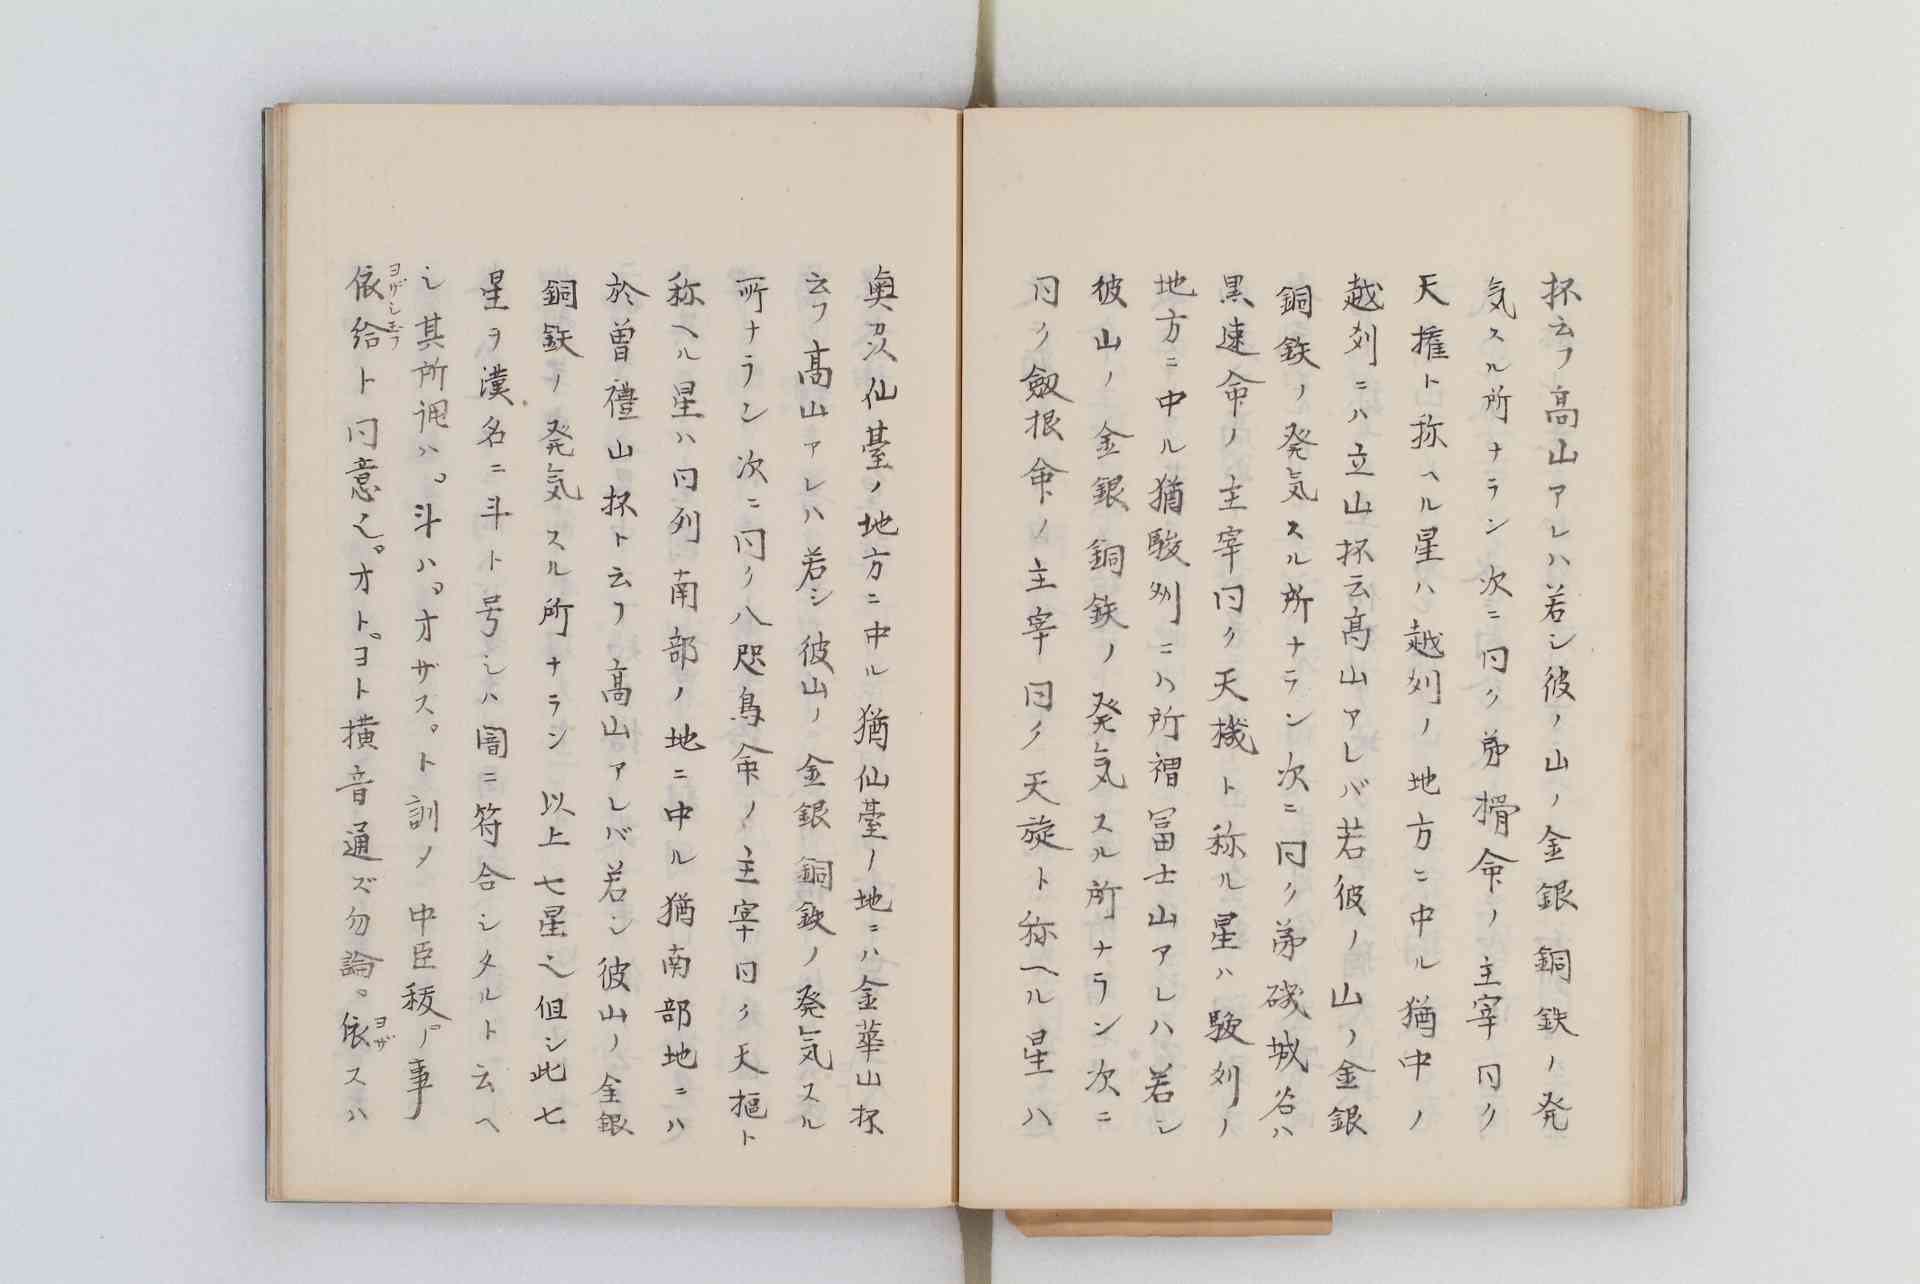 抔云フ高山アレハ若シ彼ノ山ノ金銀銅鉄ノ発
気スル所ナラン次ニ曰ク弟猾命ノ主宰曰ク
天權ト称ヘル星ハ越刕ノ地方ニ中ル猶中ノ
越刕ニハ立山抔云高山アレバ若彼ノ山ノ金銀
銅鉄ノ発気スル所ナラン次ニ曰ク弟磯城谷ハ
黒速命ノ主宰曰ク天機ト称ル星ハ駿刕ノ
地方ニ中ル猶駿刕ニハ所謂冨士山アレハ若シ
彼山ノ金銀銅鉄ノ発気スル所ナラン次ニ
曰ク劔根命ノ主宰曰ク天旋ト称ヘル星ハ
奥刕仙臺ノ地方ニ中ル猶仙臺ノ地ニハ金華山抔
云フ高山アレハ若シ彼山ノ金銀銅鉄ノ発気スル
所ナラン次ニ曰ク八咫鳥命ノ主宰曰ク天樞ト
称ヘル星ハ曰列南部ノ地ニ中ル猶南部地ニハ
於曽禮山抔ト云フ高山アレバ若シ彼山ノ金銀
銅鉄ノ発気スル所ナラン以上七星之但シ此七
星ヲ漢名ニ斗ト号シハ闇ニ符合シタルト云ヘ
シ其所謂ハ。斗ハ。オザス。ト訓ノ中臣秡ノ事
依給ト曰意之。オト。ヨト横音通ズ勿論。依スハ
ヨザシ玉フ
ヨザ